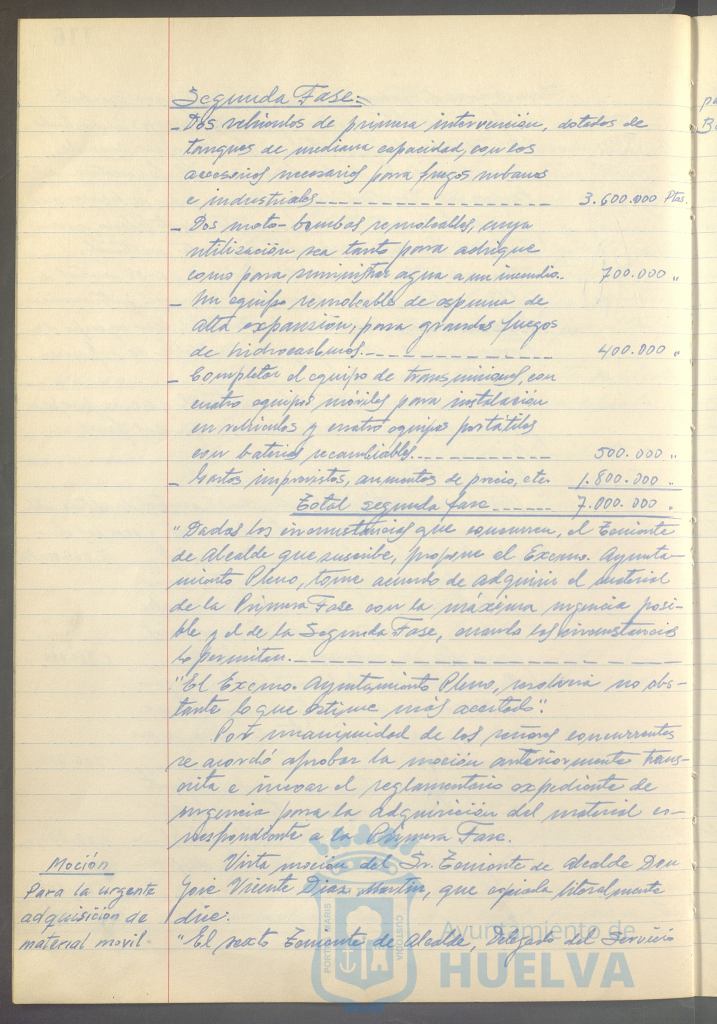 Segunda Fase=
- Dos vehículos de primera intervención, dotados de
tanques de mediana capacidad, con los
accesorios necesarios para fuegos urbanos
e industriales 3.600.000 Ptas.
- Dos moto-bombas remolcables, cuya
utilización sea tanto para achique
como para suministrar agua a un incendio. 700.000 "
- Un equipo remolcable de espuma de
alta expansión, para grandes fuegos
de hidrocarburos. 400.000 "
- Completar el equipo de transmisiones, con
cuatro equipos móviles para instalación
en vehículos y cuatro equipos portátiles
con baterías recambiables. 500.000 "
- Gastos imprevistos, aumentos de precio, etc. 1.800.000 "
Total segunda fase 7.000.000 "
"Dadas las circunstancias que concurren, el Teniente
de Alcalde que suscribe, propone al Excmo. Ayunta-
miento Pleno, tome acuerdo de adquirir el material
de la Primera Fase con la máxima urgencia posi-
ble y el de la Segunda Fase, cuando las circunstancias
lo permitan.
"El Excmo. Ayuntamiento Pleno, resolverá no obs-
tante lo que estime más acertado".
Por unanimidad de los señores concurrentes
se acordó aprobar la moción anteriormente trans-
crita e incoar el reglamentario expediente de
urgencia para la adquisición del material co-
rrespondiente a la Primera Fase.
Moción
Para la urgente
adquisición de
material movil.
Vista moción del Sr. Teniente de Alcalde Don
José Vicente Díaz Martín, que copiada literalmente
dice:
"El sexto Teniente de Alcalde, Delegado del Servicio
PORTUS MARIS
CUSTODIA
Ayuntamiento de
HUELVA